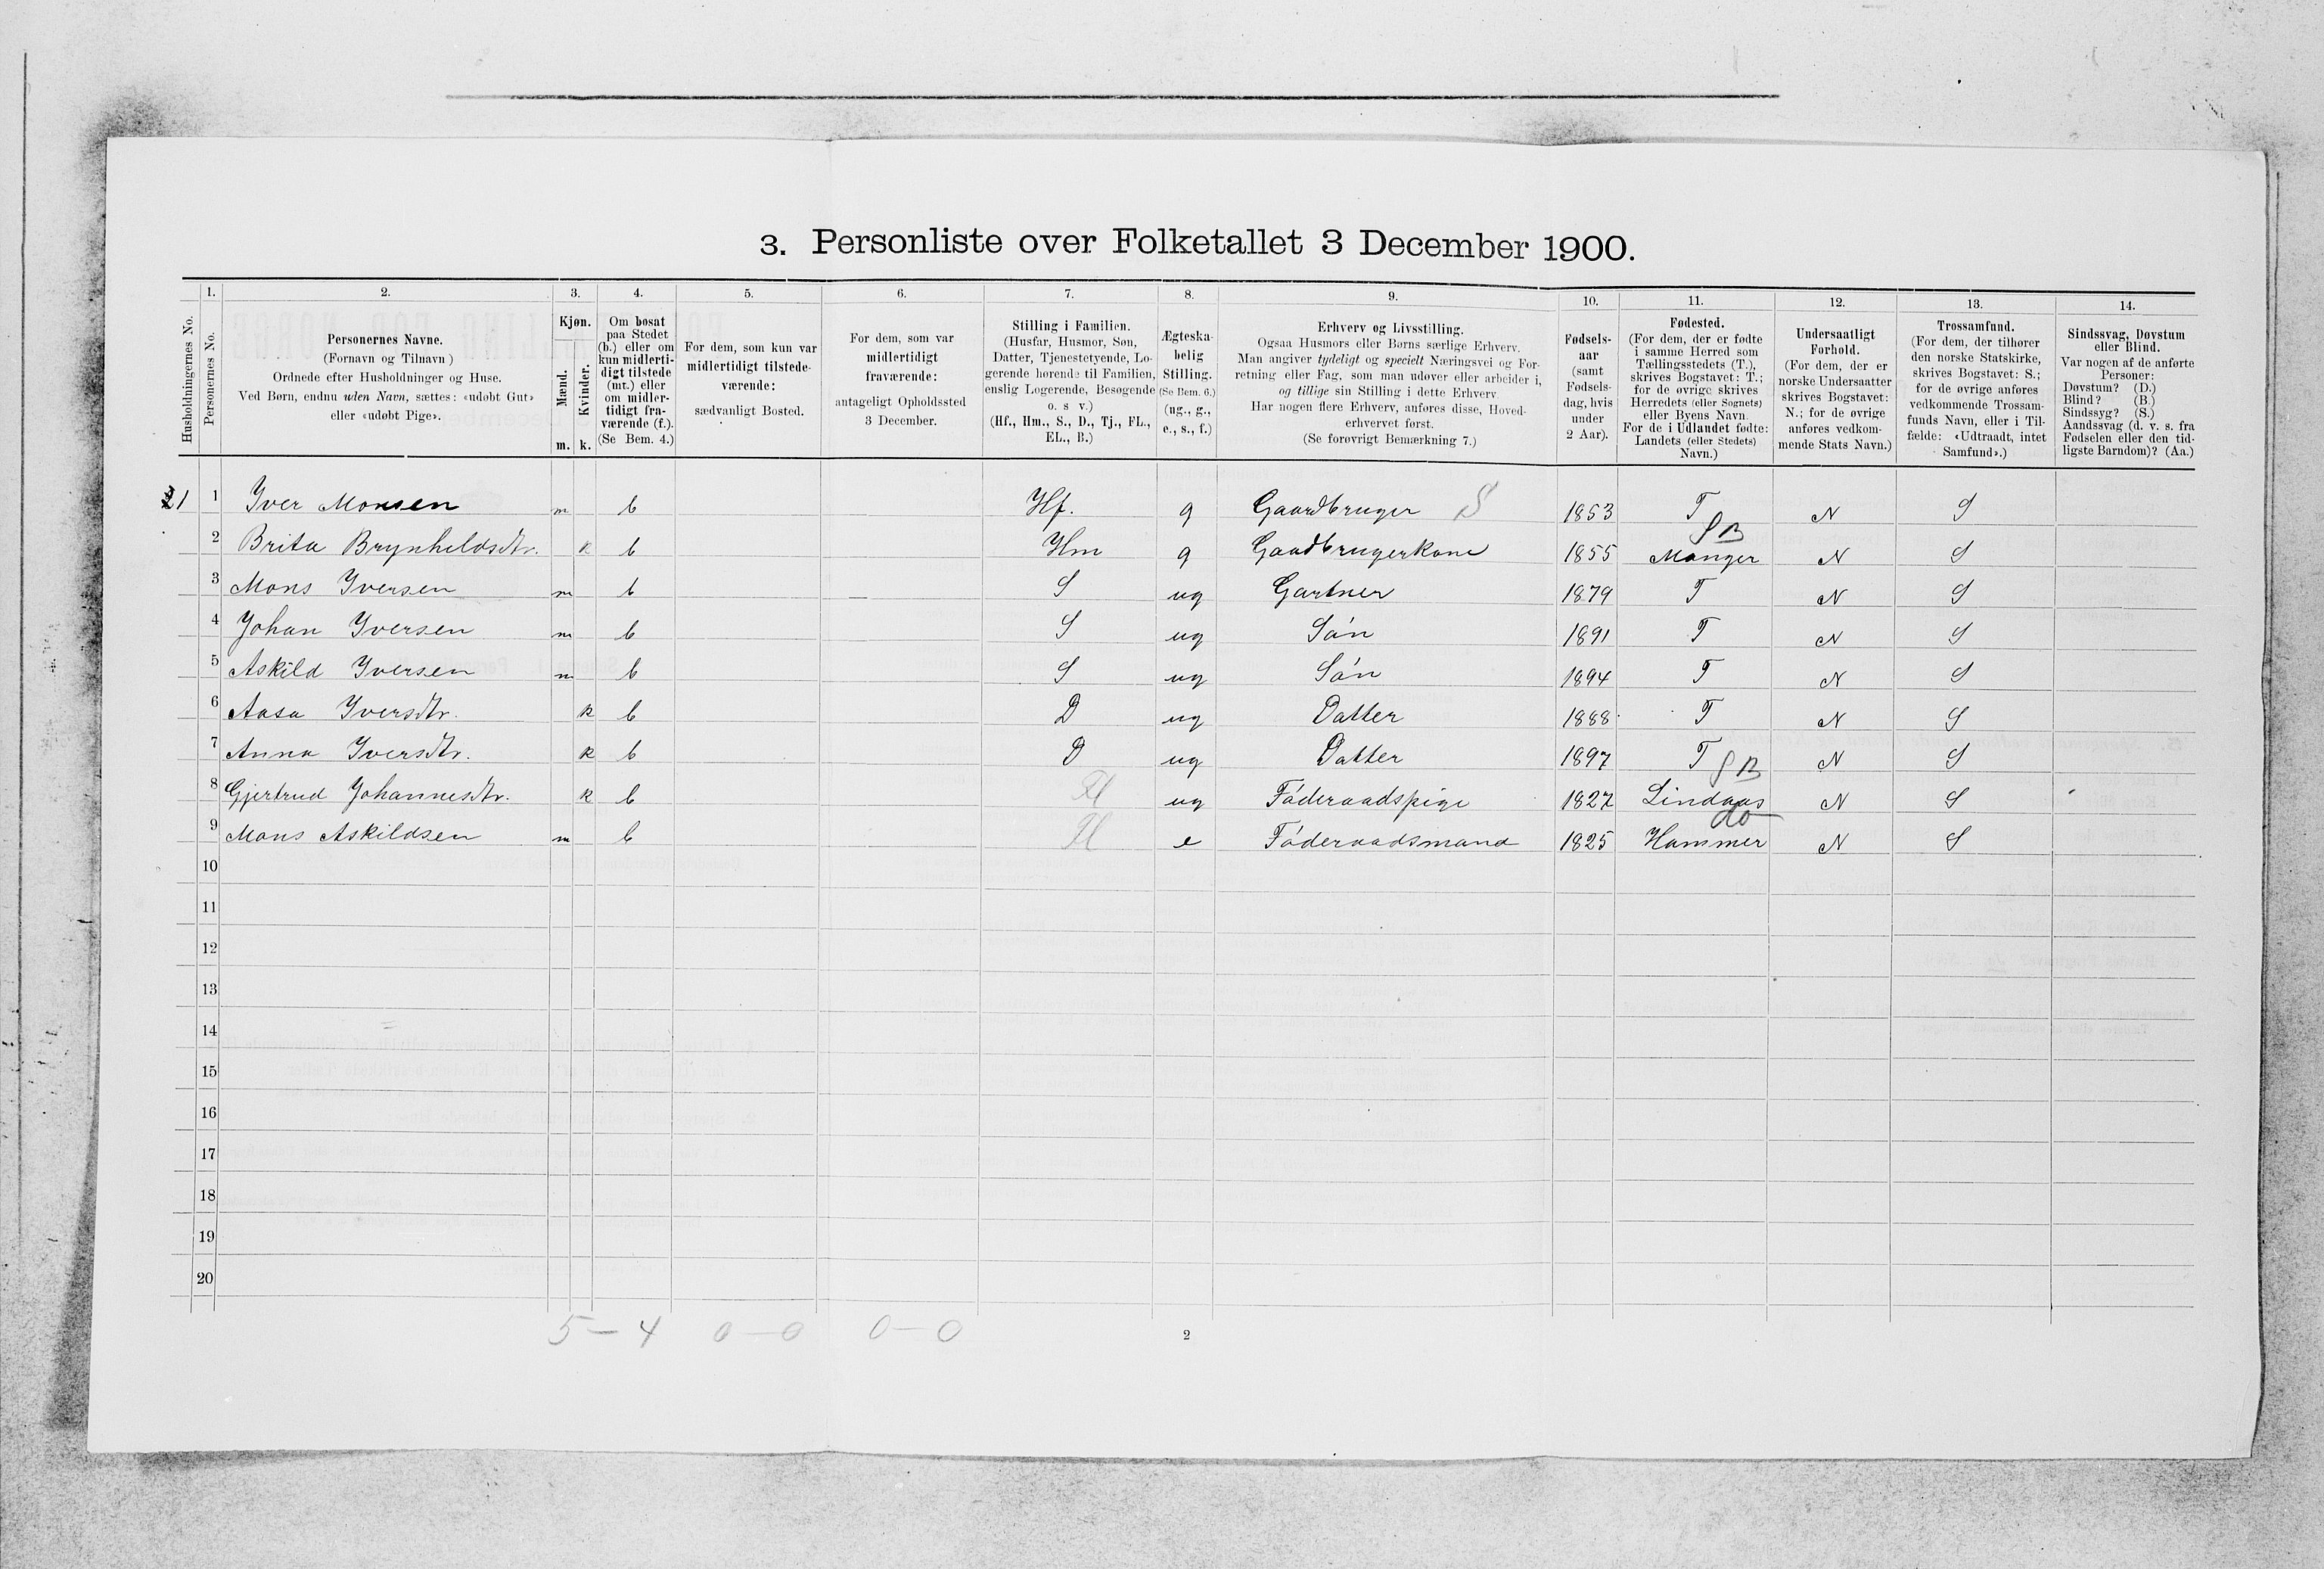 3. Personliste over Folketallet 3 December 1900.
Husholdningernes No.
1. Personernes No.
2. Personernes Navne.
(Fornavn og Tilnavn)
Ordnede efter Husholdninger og Huse.
Ved Børn, endnu uden Navn, sættes: «udøbt Gut»
eller «udøbt Pige».
3. Kjøn.
Mænd. m.
Kvinder. k.
4. Om bosat
paa Stedet
(b.) eller om
kun midlerti-
digt tilstede
(mt.) eller
om midler-
tidigt fra-
værende (f.).
(Se Bem. 4.)
5. For dem, som kun var
midlertidigt tilstede-
værende:
sædvanligt Bosted.
6. For dem, som var
midlertidigt
fraværende:
antageligt Opholdssted
3 December.
7. Stilling i Familien.
(Husfar, Husmor, Søn,
Datter, Tjenestetyende, Lo-
gerende hørende til Familien,
enslig Logerende, Besøgende
o. s v.)
(Hf., Hm., S., D., Tj., FL.,
EL., B.)
8. Ægteska-
belig
Stilling.
(Se Bem. 6.)
(ug., g.,
e., s., f.)
9. Erhverv og Livsstilling.
Ogsaa Husmors eller Børns særlige Erhverv.
Man angiver tydeligt og specielt Næringsvei og For-
retning eller Fag, som man udøver eller arbeider i,
og tillige sin Stilling i dette Erhverv.
Har nogen flere Erhverv, anføres disse, Hoved-
erhvervet først.
(Se forøvrigt Bemærkning 7.)
10. Fødsels-
aar
(samt
Fødsels-
dag, hvis
under
2 Aar).
11. Fødested.
(For dem, der er fødte
i samme Herred som
Tællingsstedets (T.),
skrives Bogstavet: T.;
for de øvrige skrives
Herredets (eller Sognets)
eller Byens Navn.
For de i Udlandet fødte:
Landets (eller Stedets)
Navn.)
12. Undersaatligt
Forhold.
(For dem, der er
norske Undersaatter
skrives Bogstavet:
N.; for de øvrige
anføres vedkom-
mende Stats Navn.)
13. Trossamfund.
(For dem, der tilhører
den norske Statskirke,
skrives Bogstavet: S.;
for de øvrige anføres
vedkommende Trossam-
funds Navn, eller i Til-
fælde: «Udtraadt, intet
Samfund».)
14. Sindssvag, Døvstum
eller Blind.
Var nogen af de anførte
Personer:
Døvstum? (D.)
Blind? (B.)
Sindssyg? (S.)
Aandssvag (d. v. s. fra
Fødselen eller den tid-
ligste Barndom)? (Aa.)
1 1 Iver Monsen m b Hf. g Gaardbruger S 1853 T N S
2 Brita Brynhildsdtr. k b Hm g Gaadbrugerkone 1855 Manger N S
3 Mons Iversen m b S ug Gartner 1879 T N S
4 Johan Iversen m b S ug Sön 1891 T N S
5 Askild Iversen m b S ug Sön 1894 T N S
6 Aasa Iversdtr. k b D ug Datter 1888 T N S
7 Anna Iversdtr. k b D ug Datter 1897 T N S
8 Gjertrud Johannesdtr. k b Fl ug Föderaadspige 1827 Lindaas N S
9 Mons Askildsen m b Fl e Föderaadsmand 1825 do Hammer N S
10
11
12
13
14
15
16
17
18
19
20
5 – 4 0 – 0 0 – 0
2